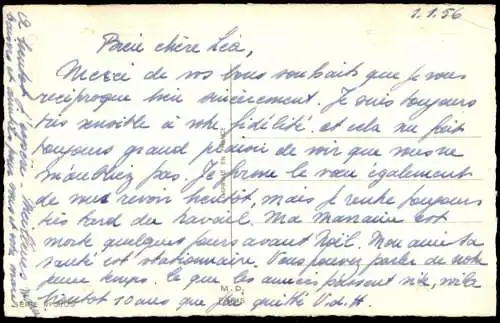 1.1.56
Bien chère Léa,
Merci de vos bons souhaits que je vous
réciproque bien sincèrement. Je suis toujours
très sensible à votre fidélité et cela me fait
toujours grand plaisir de voir que vous ne
m'oubliez pas. Je forme le vœu également
de vous revoir bientôt, mais je rentre toujours
très tard du travail. Ma marraine est
morte quelques jours avant Noël. Mon amie sa
santé est stationnaire. Vous pouvez parler de notre
jeune temps. Ce que les années passent vite, voilà
bientôt 10 ans que j'ai quitté V.d.H.
A bientôt j'espère - Meilleurs
baisers et amitiés pour vous et votre mari
M.D.
PARIS